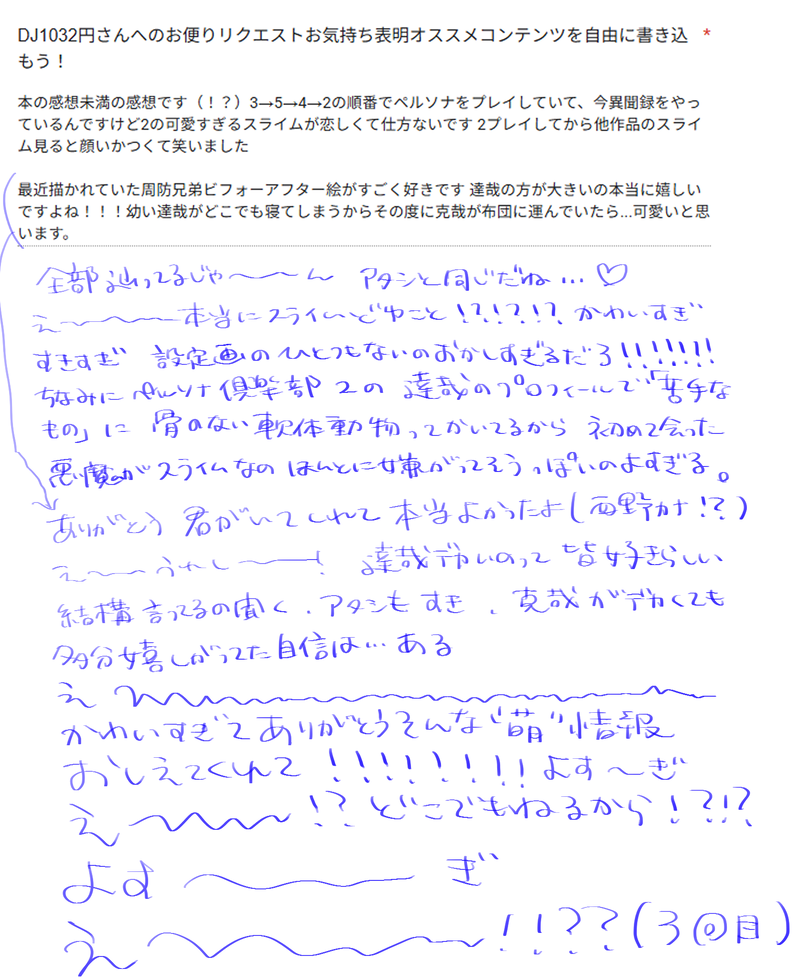 DJ1032円さんへのお便りリクエストお気持ち表明オススメコンテンツを自由に書き込 *
もう！
本の感想未満の感想です（！？）3→5→4→2の順番でペルソナをプレイしていて、今異聞録をやっ
ているんですけど2の可愛すぎるスライムが恋しくて仕方ないです 2プレイしてから他作品のスライ
ム見ると顔いかつくて笑いました
最近描かれていた周防兄弟ビフォーアフター絵がすごく好きです 達哉の方が大きいの本当に嬉しい
ですよね！！！幼い達哉がどこでも寝てしまうからその度に克哉が布団に運んでいたら...可愛いと思
います。
全部辿ってるじゃ〜〜〜ん アタシと同じだね…♡
え〜〜〜本当にスライムどゆこと!?!?!? かわいすぎ
すきすぎ 設定画のひとつもないのおかしすぎるだろ!!!!!!!
ちなみにペルソナ倶楽部2の 達哉のプロフィールで「苦手な
もの」に 骨のない軟体動物ってかいてるから 初めて会った
悪魔がスライムなの ほんとに嫌がってそうっぽいのよすぎる。
ありがとう 君がいてくれて 本当よかったよ(西野カナ!?)
え〜〜うれし〜〜! 達哉デカいのって 皆好きらしい
結構言ってるの聞く、アタシもすき、克哉がデカくても
多分嬉しがってた自信は…ある
え〜〜〜〜〜〜〜〜〜〜
かわいすぎてありがとうそんな"萌"情報
おしえてくれて!!!!!!!!よす〜ぎ
え〜〜〜〜!?どこでもねるから!?!?
よす〜〜〜ぎ
え〜〜〜〜〜!!??(3回目)